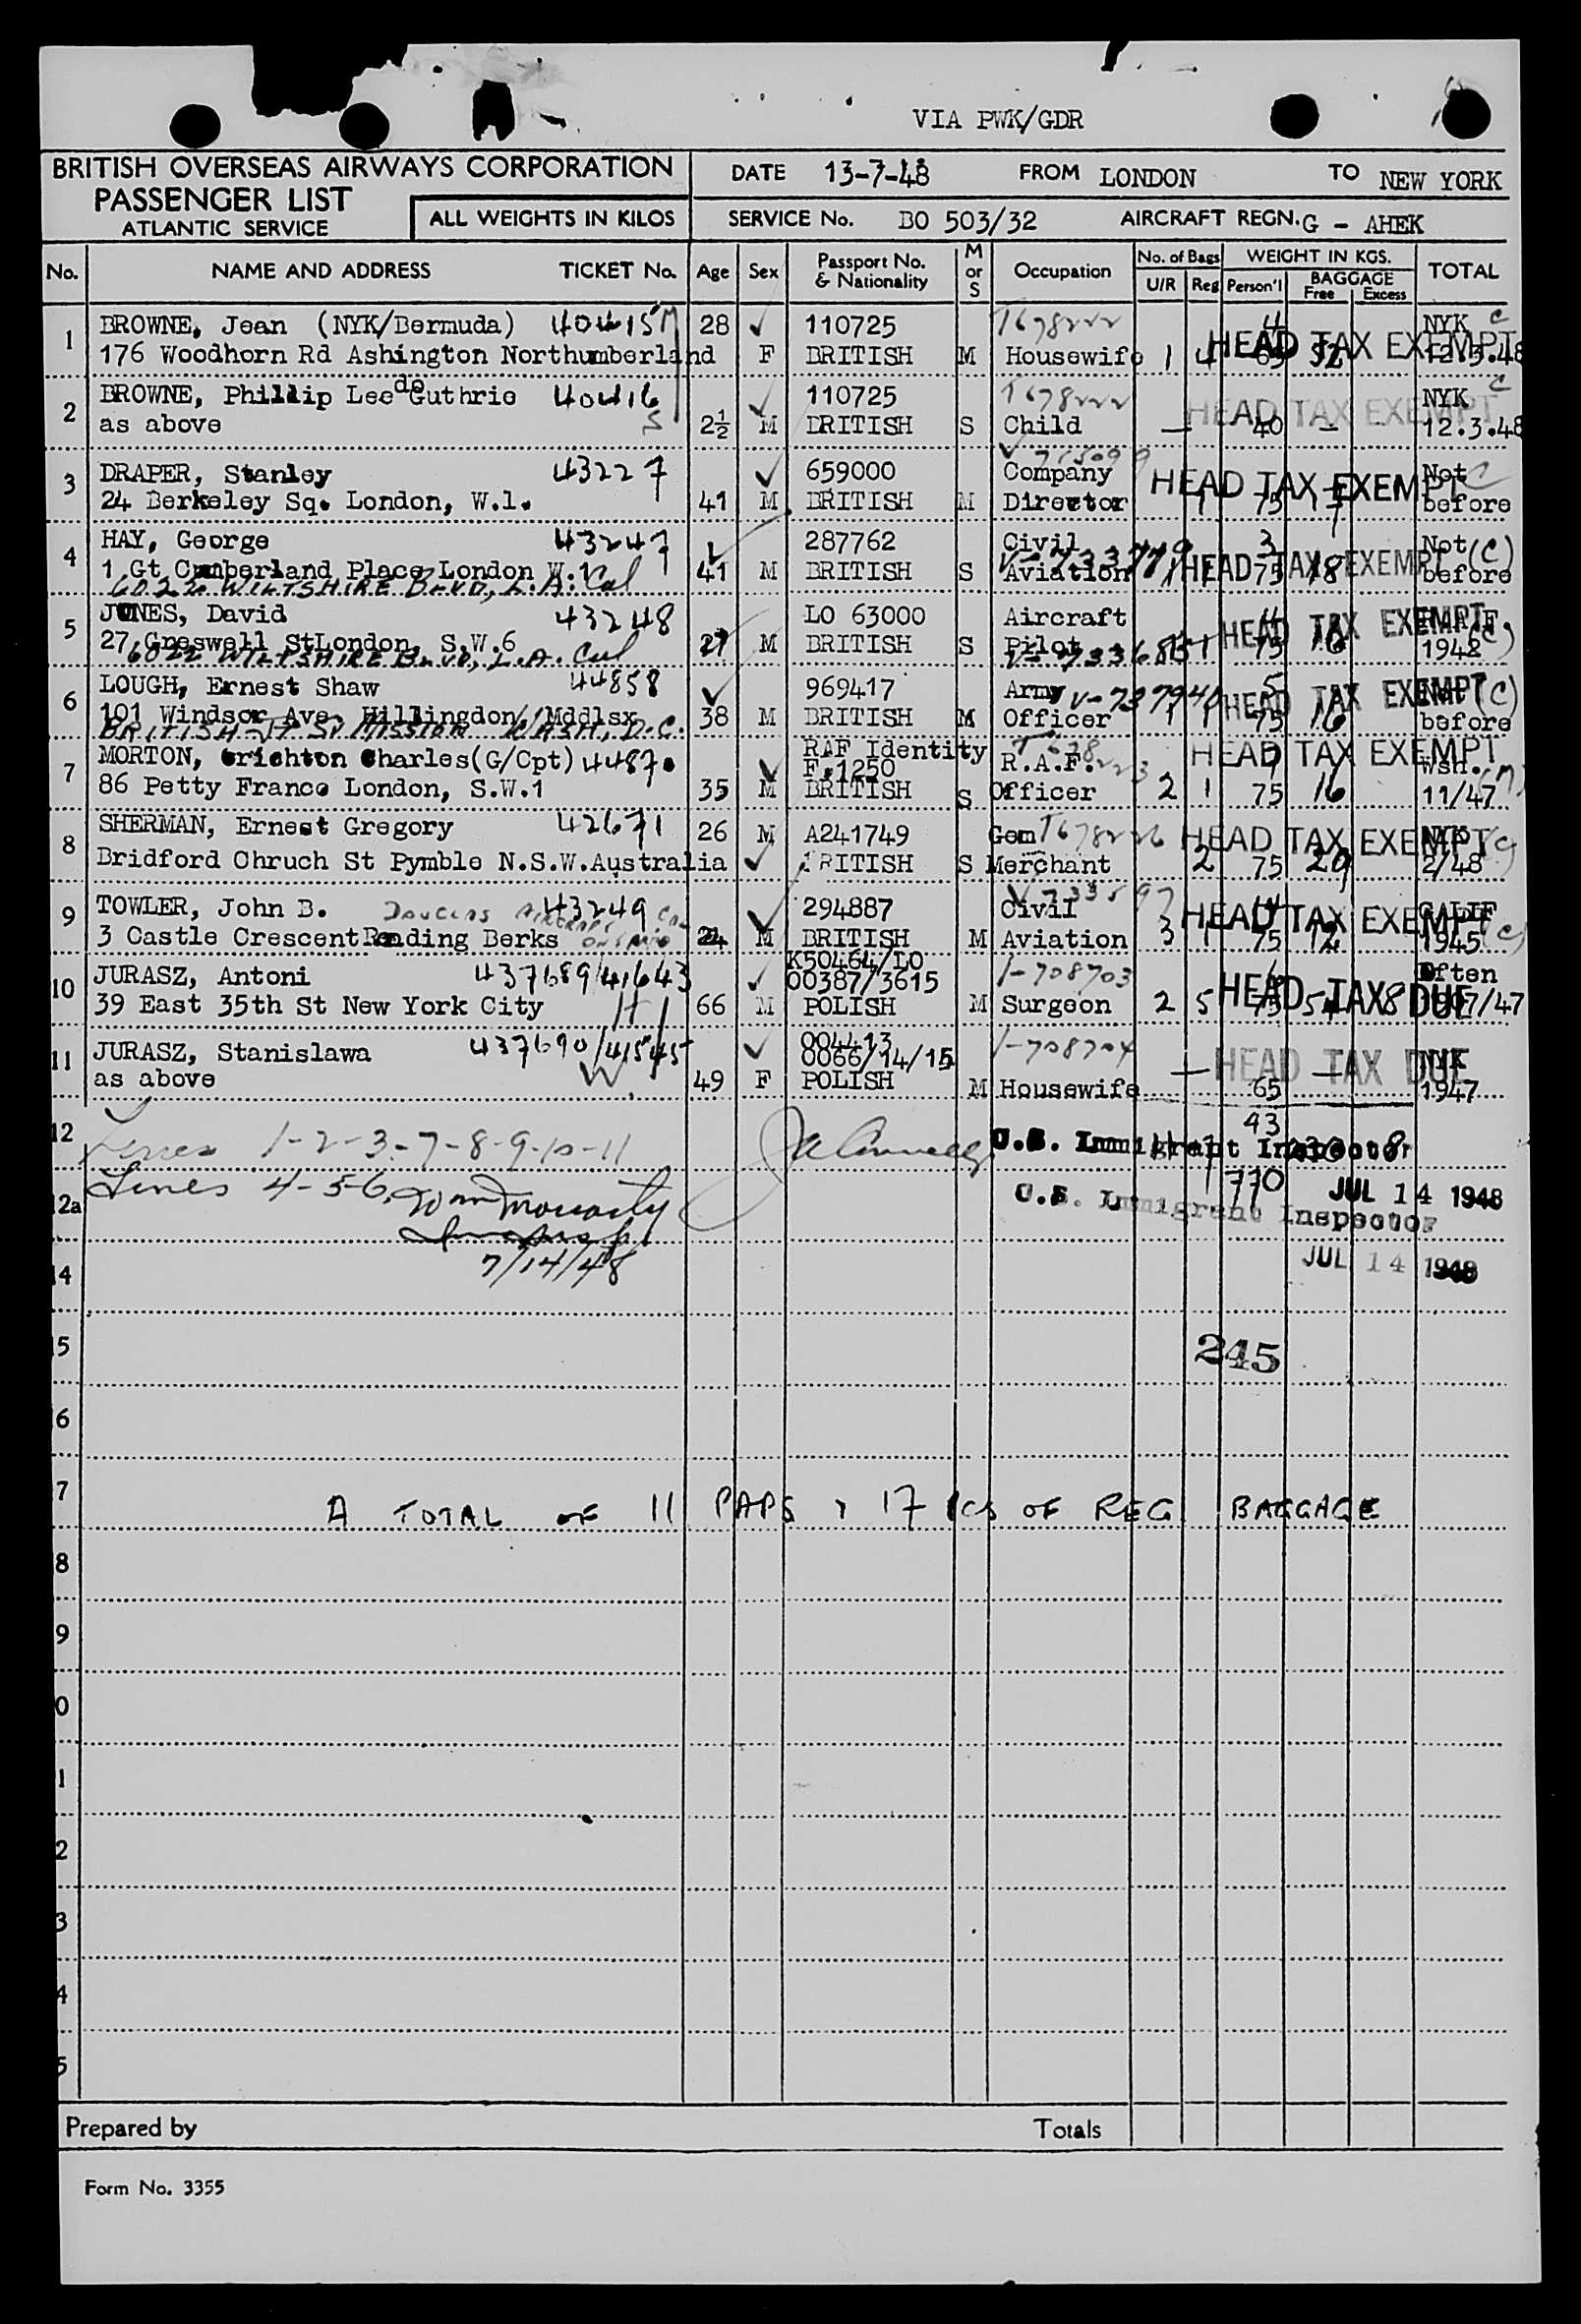 VIA PWK/GDR
BRITISH OVERSEAS AIRWAYS CORPORATION
PASSENGER LIST
ATLANTIC SERVICE
ALL WEIGHTS IN KILOS
DATE 13-7-48 FROM LONDON TO NEW YORK
SERVICE No. BO 503/32 AIRCRAFT REGN. G - AHEK
No. NAME AND ADDRESS TICKET No. Age Sex Passport No. & Nationality M or S Occupation No. of Bags U/R Reg WEIGHT IN KGS. Person'l BAGGAGE Free Excess TOTAL
1 BROWNE, Jean (NYK/Bermuda) 40415 M 28 110725 T678222 4 NYK C
176 Woodhorn Rd Ashington Northumberland F BRITISH M Housewife 1 4 65 52 HEAD TAX EXEMPT 12.3.48
2 BROWNE, Phillip Lee de Guthrie 40416 110725 T678222 NYK C
as above S 2½ M BRITISH S Child — 40 - HEAD TAX EXEMPT 12.3.48
3 DRAPER, Stanley 43227 659000 Company Not C
24 Berkeley Sq. London, W.1. 41 M BRITISH M Director 1 75 17 HEAD TAX EXEMPT before
4 HAY, George 43247 287762 Civil 3 Not (C)
1 Gt Cumberland Place London W.1 41 M BRITISH S Aviation V-733779 1 1 75 18 HEAD TAX EXEMPT before
6022 WILTSHIRE BLVD, L.A. Cal
5 JONES, David 43248 LO 63000 Aircraft 4
27 Greswell StLondon, S.W.6 27 M BRITISH S Pilot 1 75 16 HEAD TAX EXEMPT 1948 (C)
6022 WILTSHIRE BLVD, L.A. Cal
6 LOUGH, Ernest Shaw 44858 969417 Army V-737940 5 Not (C)
101 Windsor Ave. Hillingdon Mddlsx 38 M BRITISH M Officer 1 1 75 16 HEAD TAX EXEMPT before
BRITISH JT SV MISSION WASH, D.C.
7 MORTON, Crichton Charles(G/Cpt) 44870 RAF Identity F.1250 R.A.F. T678223 HEAD TAX EXEMPT Wsh.
86 Petty France London, S.W.1 35 M BRITISH S Officer 2 1 75 16 11/47
8 SHERMAN, Ernest Gregory 42671 26 M A241749 Gem T678226 HEAD TAX EXEMPT NYK (C)
Bridford Chruch St Pymble N.S.W.Australia BRITISH S Merchant 2 75 20 2/48
9 TOWLER, John B. 43249 DOUGLAS AIRCRAFT 294887 Civil HEAD TAX EXEMPT CALIF
3 Castle Crescent Reading Berks 24 M BRITISH M Aviation 3 1 75 12 1945 (C)
10 JURASZ, Antoni 437689/41643 K50464/LO 00387/3615 1-708703 Often
39 East 35th St New York City H 66 M POLISH M Surgeon 2 5 75 8 HEAD TAX DUE 1907/47
11 JURASZ, Stanislawa 437690/41545 004413 0066/14/15 1-708704 NYK
as above W 49 F POLISH M Housewife — 65 — HEAD TAX DUE 1947
12 Lines 1-2-3-7-8-9-10-11 U.S. Immigrant Inspector 93 8
12a Lines 4-5-6, Wm Moriarty 770 JUL 14 1948
U.S. Immigrant Inspector
Inspector
14 7/14/48 JUL 14 1948
5 245
6
7 A TOTAL OF 11 PAPS, 17 PCS OF REG BAGGAGE
8
9
0
1
2
3
4
5
Prepared by Totals
Form No. 3355